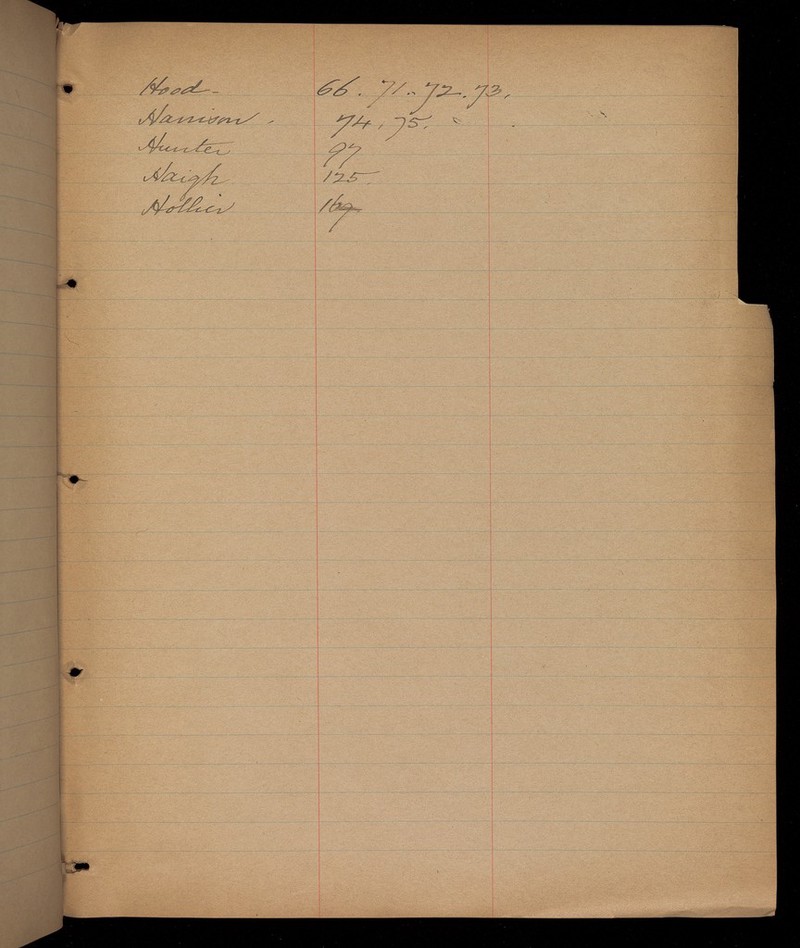 Hood - 66. 71. 72. 73.
Harrison. 74, 75.
Hunter 97
Haigh 125.
Hollier 169